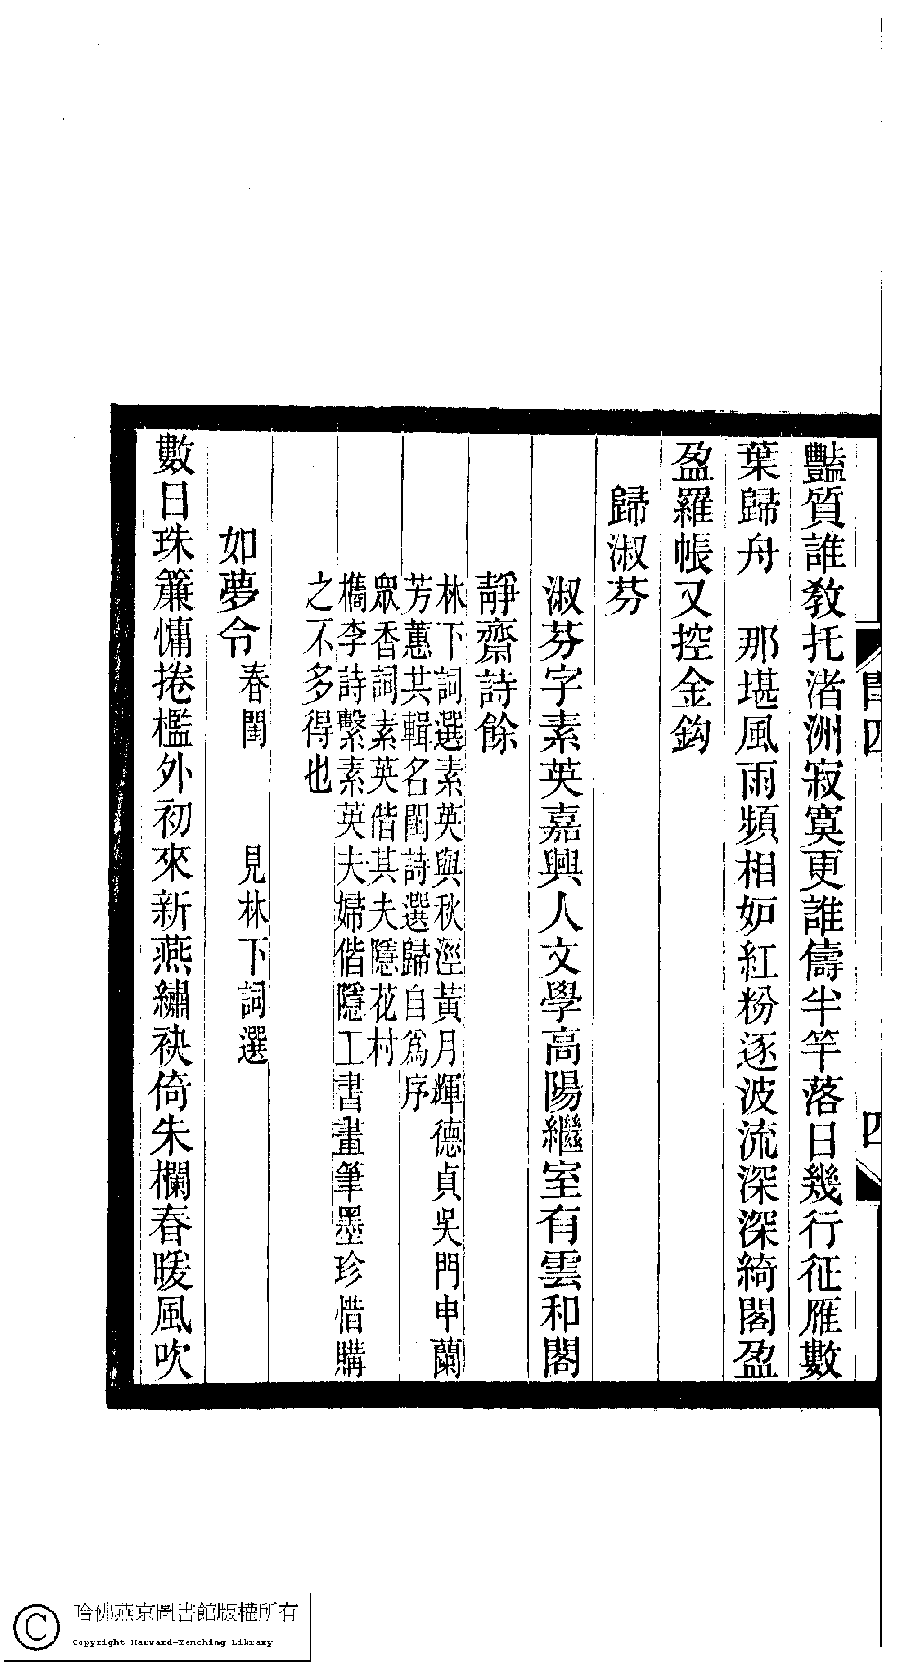 閨四
四
豔質誰敎托渚洲寂寞更誰儔半竿落日幾行征雁數
葉歸舟　那堪風雨頻相妒紅粉逐波流深深綺閣盈
盈羅帳又控金鈎
歸淑芬
淑芬字素英嘉興人文學高陽繼室有雲和閣
靜齋詩餘
林下詞選素英與秋涇黃月輝德貞吳門申蘭
芳蕙共輯名閨詩選歸自爲序
眾香詞素英偕其夫隱花村
檇李詩繫素英夫婦偕隱工書畫筆墨珍惜購
之不多得也
如夢令春閨　見林下詞選
數日珠簾慵捲檻外初來新燕繡袂倚朱欄春暖風吹
哈佛燕京圖書館版權所有
Copyright Harvard-Yenching Library